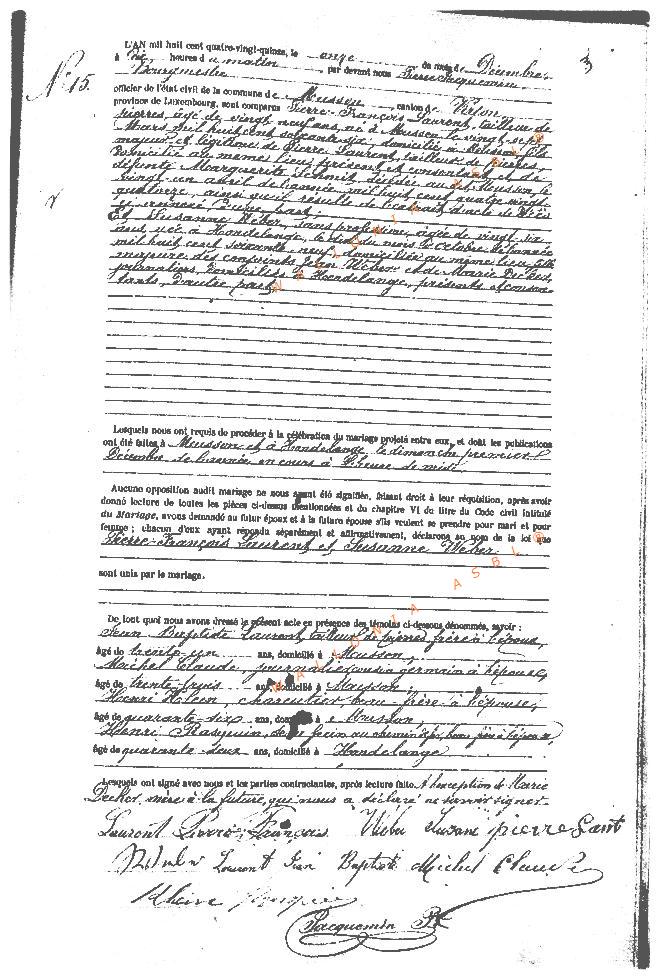 N° 15.
3
L'AN mil huit cent quatre-vingt-quinze, le onze du mois de Décembre
à dix heures du matin par devant nous Pierre Jacquemin
Bourgmestre
officier de l'état civil de la commune de Musson canton de Virton
province de Luxembourg, sont comparus Pierre-François Laurent, tailleur de
pierres, âgé de vingt neuf ans, né à Musson le vingt sept
Mars mil huit cent soixante six, domicilié à Musson, fils
majeur et légitime de Pierre Laurent, tailleur de pierres
domicilié au même lieu, présent et consentant, et de
défunte Marguerite Schmit, décédée au dit Musson, le
vingt un avril de l'année mil huit cent quatre vingt
quatorze, ainsi qu'il résulte de l'extrait d'acte de décès
ci annexé d'une part;
Et Susanne Weber, sans profession, âgée de vingt six
ans, née à Hondelange, le dix du mois d'Octobre de l'année
mil huit cent soixante neuf, domiciliée au même lieu, fille
majeure des conjoints Jean Weber et de Marie
journaliers, domiciliés à Hondelange, présents et consen-
tants, d'autre part
Lesquels nous ont requis de procéder à la célébration du mariage projeté entre eux, et dont les publications
ont été faites à Musson et à Hondelange le dimanche premier
Décembre de l'année en cours à l'heure de midi
Aucune opposition audit mariage ne nous ayant été signifiée, faisant droit à leur réquisition, après avoir
donné lecture de toutes les pièces ci-dessus mentionnées et du chapitre VI de titre du Code civil intitulé
du Mariage, avons demandé au futur époux et à la future épouse s'ils veulent se prendre pour mari et pour
femme; chacun d'eux ayant répondu séparément et affirmativement, déclarons au nom de la loi que
Pierre-François Laurent et Susanne Weber
sont unis par le mariage.
De tout quoi nous avons dressé le présent acte en présence des témoins ci-dessous dénommés, savoir :
Jean Baptiste Laurent, tailleur de pierres, frère à l'époux,
âgé de trente un ans, domicilié à Musson;
Michel Claude, journalier, cousin germain à l'épouse,
âgé de trente trois ans, domicilié à Musson;
Henri Kleen, charcutier beau-frère à l'épouse,
âgé de quarante-six ans, domicilié à Musson,
Henri Rasquin, au chemin de fer, beau frère à l'épouse,
âgé de quarante deux ans, domicilié à Hondelange
Lesquels ont signé avec nous et les parties contractantes, après lecture faite. A l'exception de Marie
mère à la future, qui nous a déclaré ne savoir signer
Laurent Pierre François Weber Susane pierre
Laurent Jean Baptiste Michel Claude
Jacquemin P
WALLONIA ASBL ©
WALLONIA ASBL ©